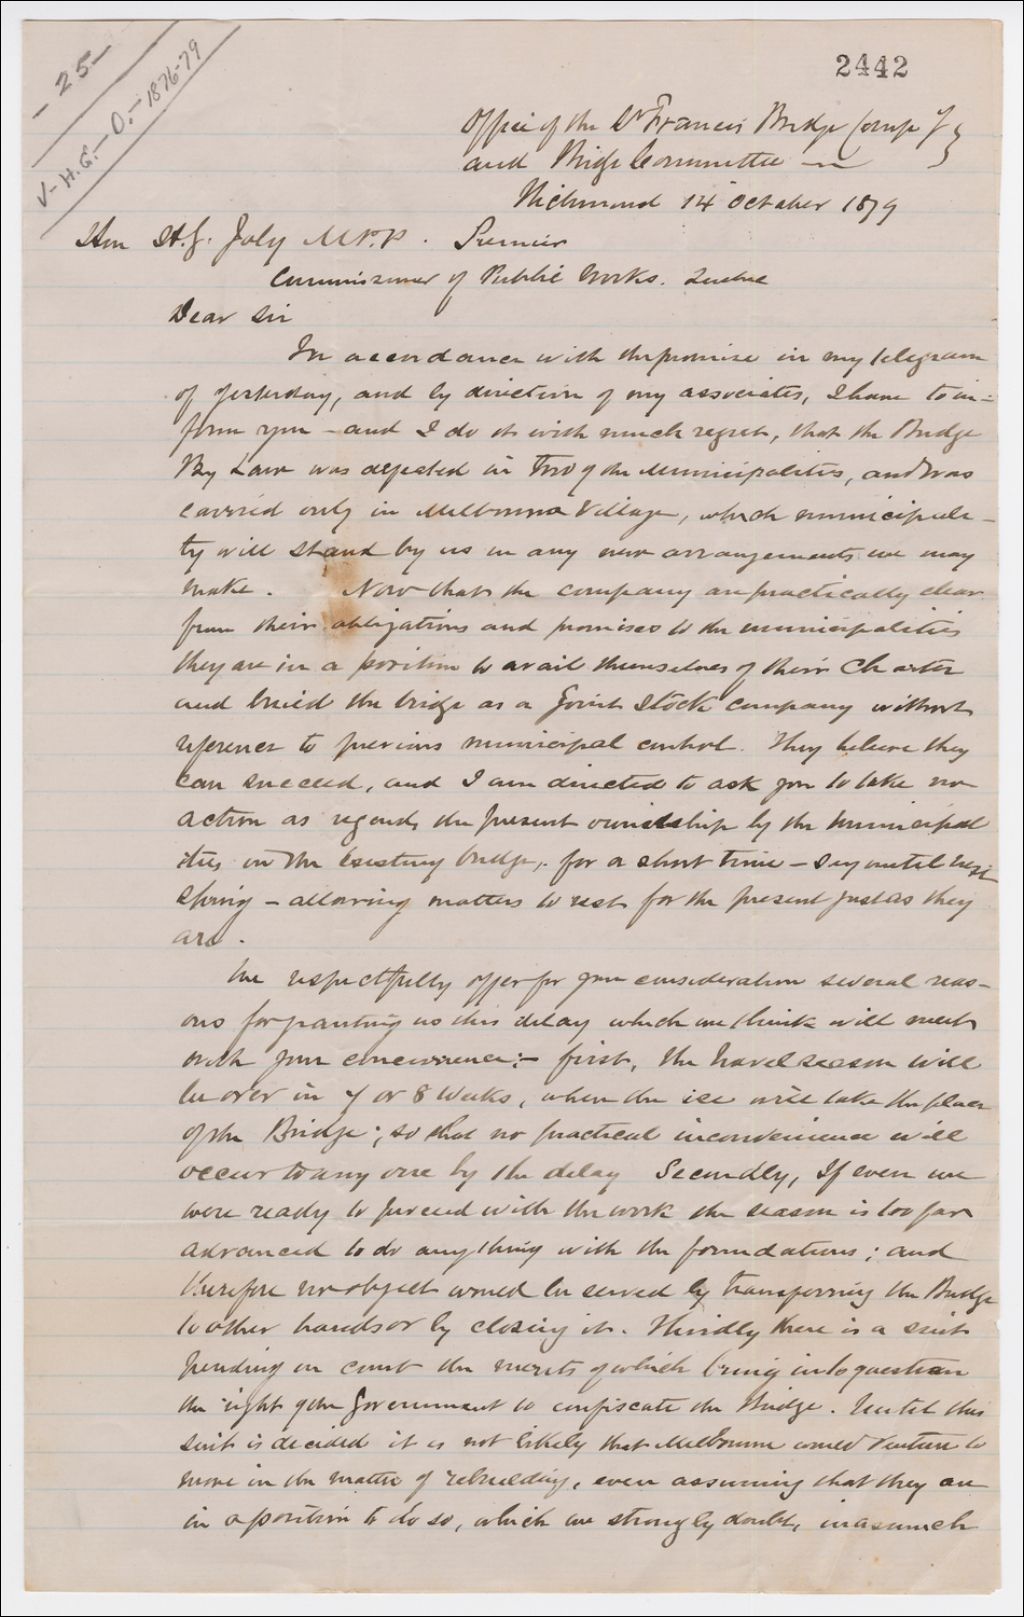 - 25 -
V - H.G. - O. - 1876-79
2442
Office of the St Francis Bridge Comp'y }
and Bridge Committee
Richmond 14 October 1879
Hon H.G. Joly M.P.P. Premier
Commissioner of Public Works. Quebec
Dear Sir
In accordance with the promise in my telegram
of yesterday, and by direction of my associates, I have to in-
form you - and I do it with much regret, that the Bridge
By Law was rejected in two of the Municipalities, and was
carried only in Melbourne Village, which municipali-
ty will stand by us in any new arrangements we may
make. Now that the company are practically clear
from their obligations and promises to the municipalities
they are in a position to avail themselves of their Charter
and build the bridge as a Joint Stock company without
reference to previous municipal control. They believe they
can succeed, and I am directed to ask you to take no
action as regards the present ownership by the Municipal
ities in the Existing bridge, for a short time - say until next
Spring - allowing matters to rest for the present just as they
are.
We respectfully offer for your consideration several reas-
ons for granting us this delay which we think will meet
with your concurrence:- first, the travel season will
be over in 7 or 8 weeks, when the ice will take the place
of the Bridge; so that no practical inconvenience will
occur to any one by the delay Secondly, If even we
were ready to proceed with the work the season is too far
advanced to do anything with the foundations; and
therefore no object would be served by transferring the Bridge
to other hands or by closing it. Thirdly there is a suit
pending in court the merits of which bring into question
the right of the Government to confiscate the Bridge. Until this
suit is decided it is not likely that Melbourne would venture to
move in the matter of rebuilding, even assuming that they are
in a position to do so, which we strongly doubt, inasmuch